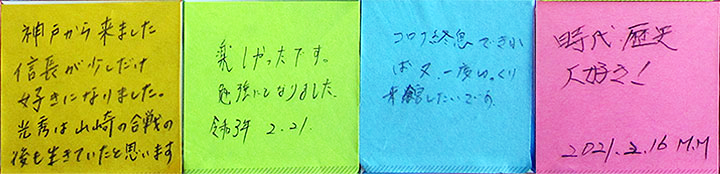 神戸から来ました
信長が少しだけ
好きになりました。
光秀は山崎の合戦の
後も生きていたと思います
楽しかったです。
勉強になりました。
令和3年 2.21.
コロナ終息できれ
ば又、一度ゆっくり
来館したいです。
時代 歴史
大好き!
2021.2.16 M.M